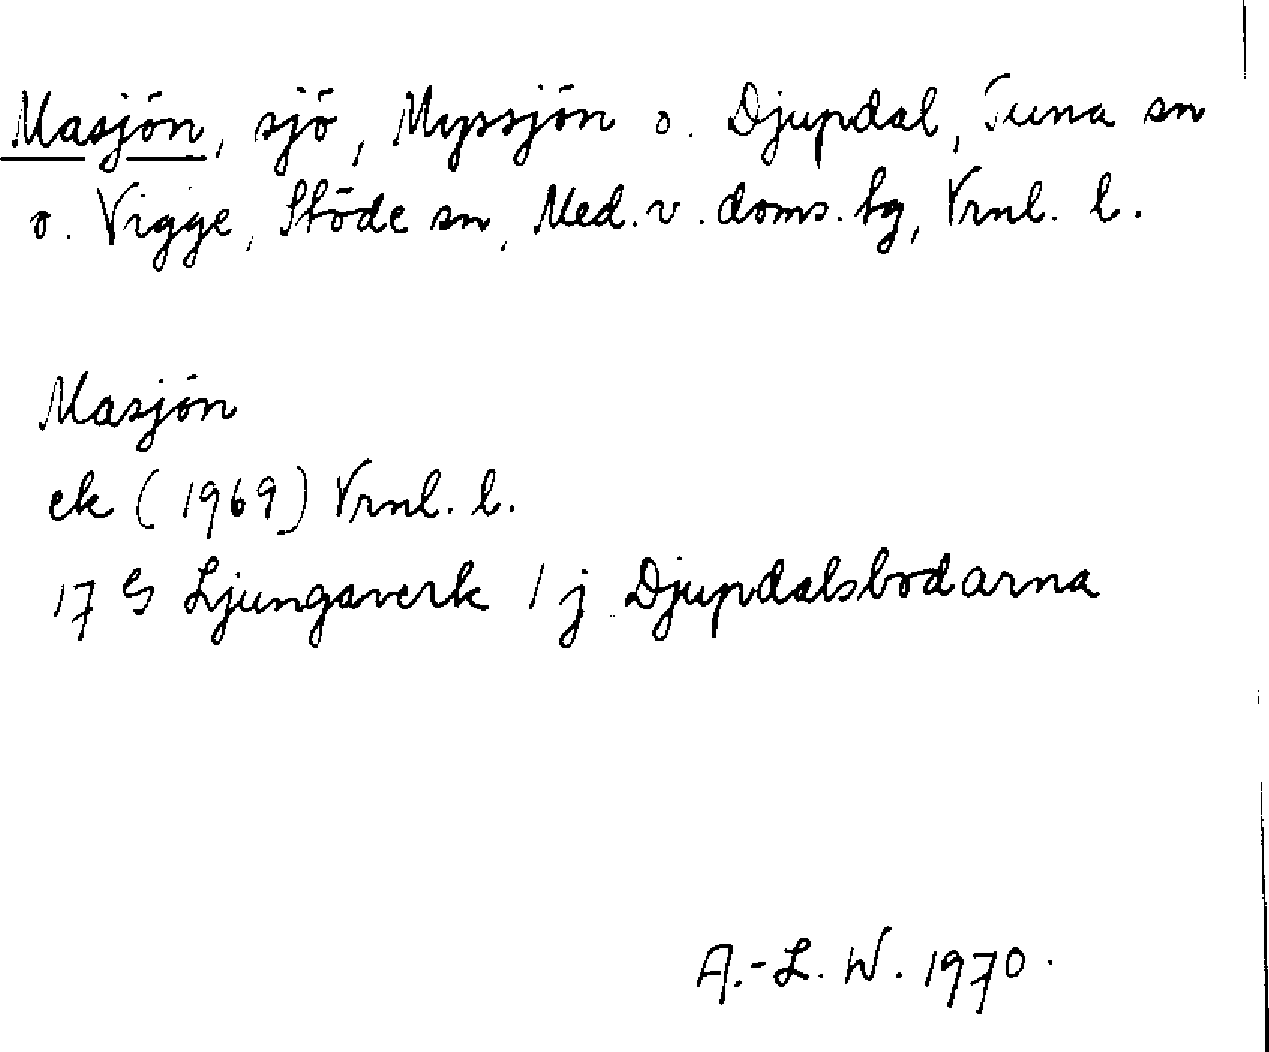 Masjön, sjö, Myssjön o. Djupdal, Tuna sn
o. Vigge, Stöde sn, Med. v. doms. tg, Vrnl. l.
Masjön
ek (1969) Vrnl. l.
17 G Ljungaverk 1 j Djupdalsbodarna
A.-L. W. 1970.